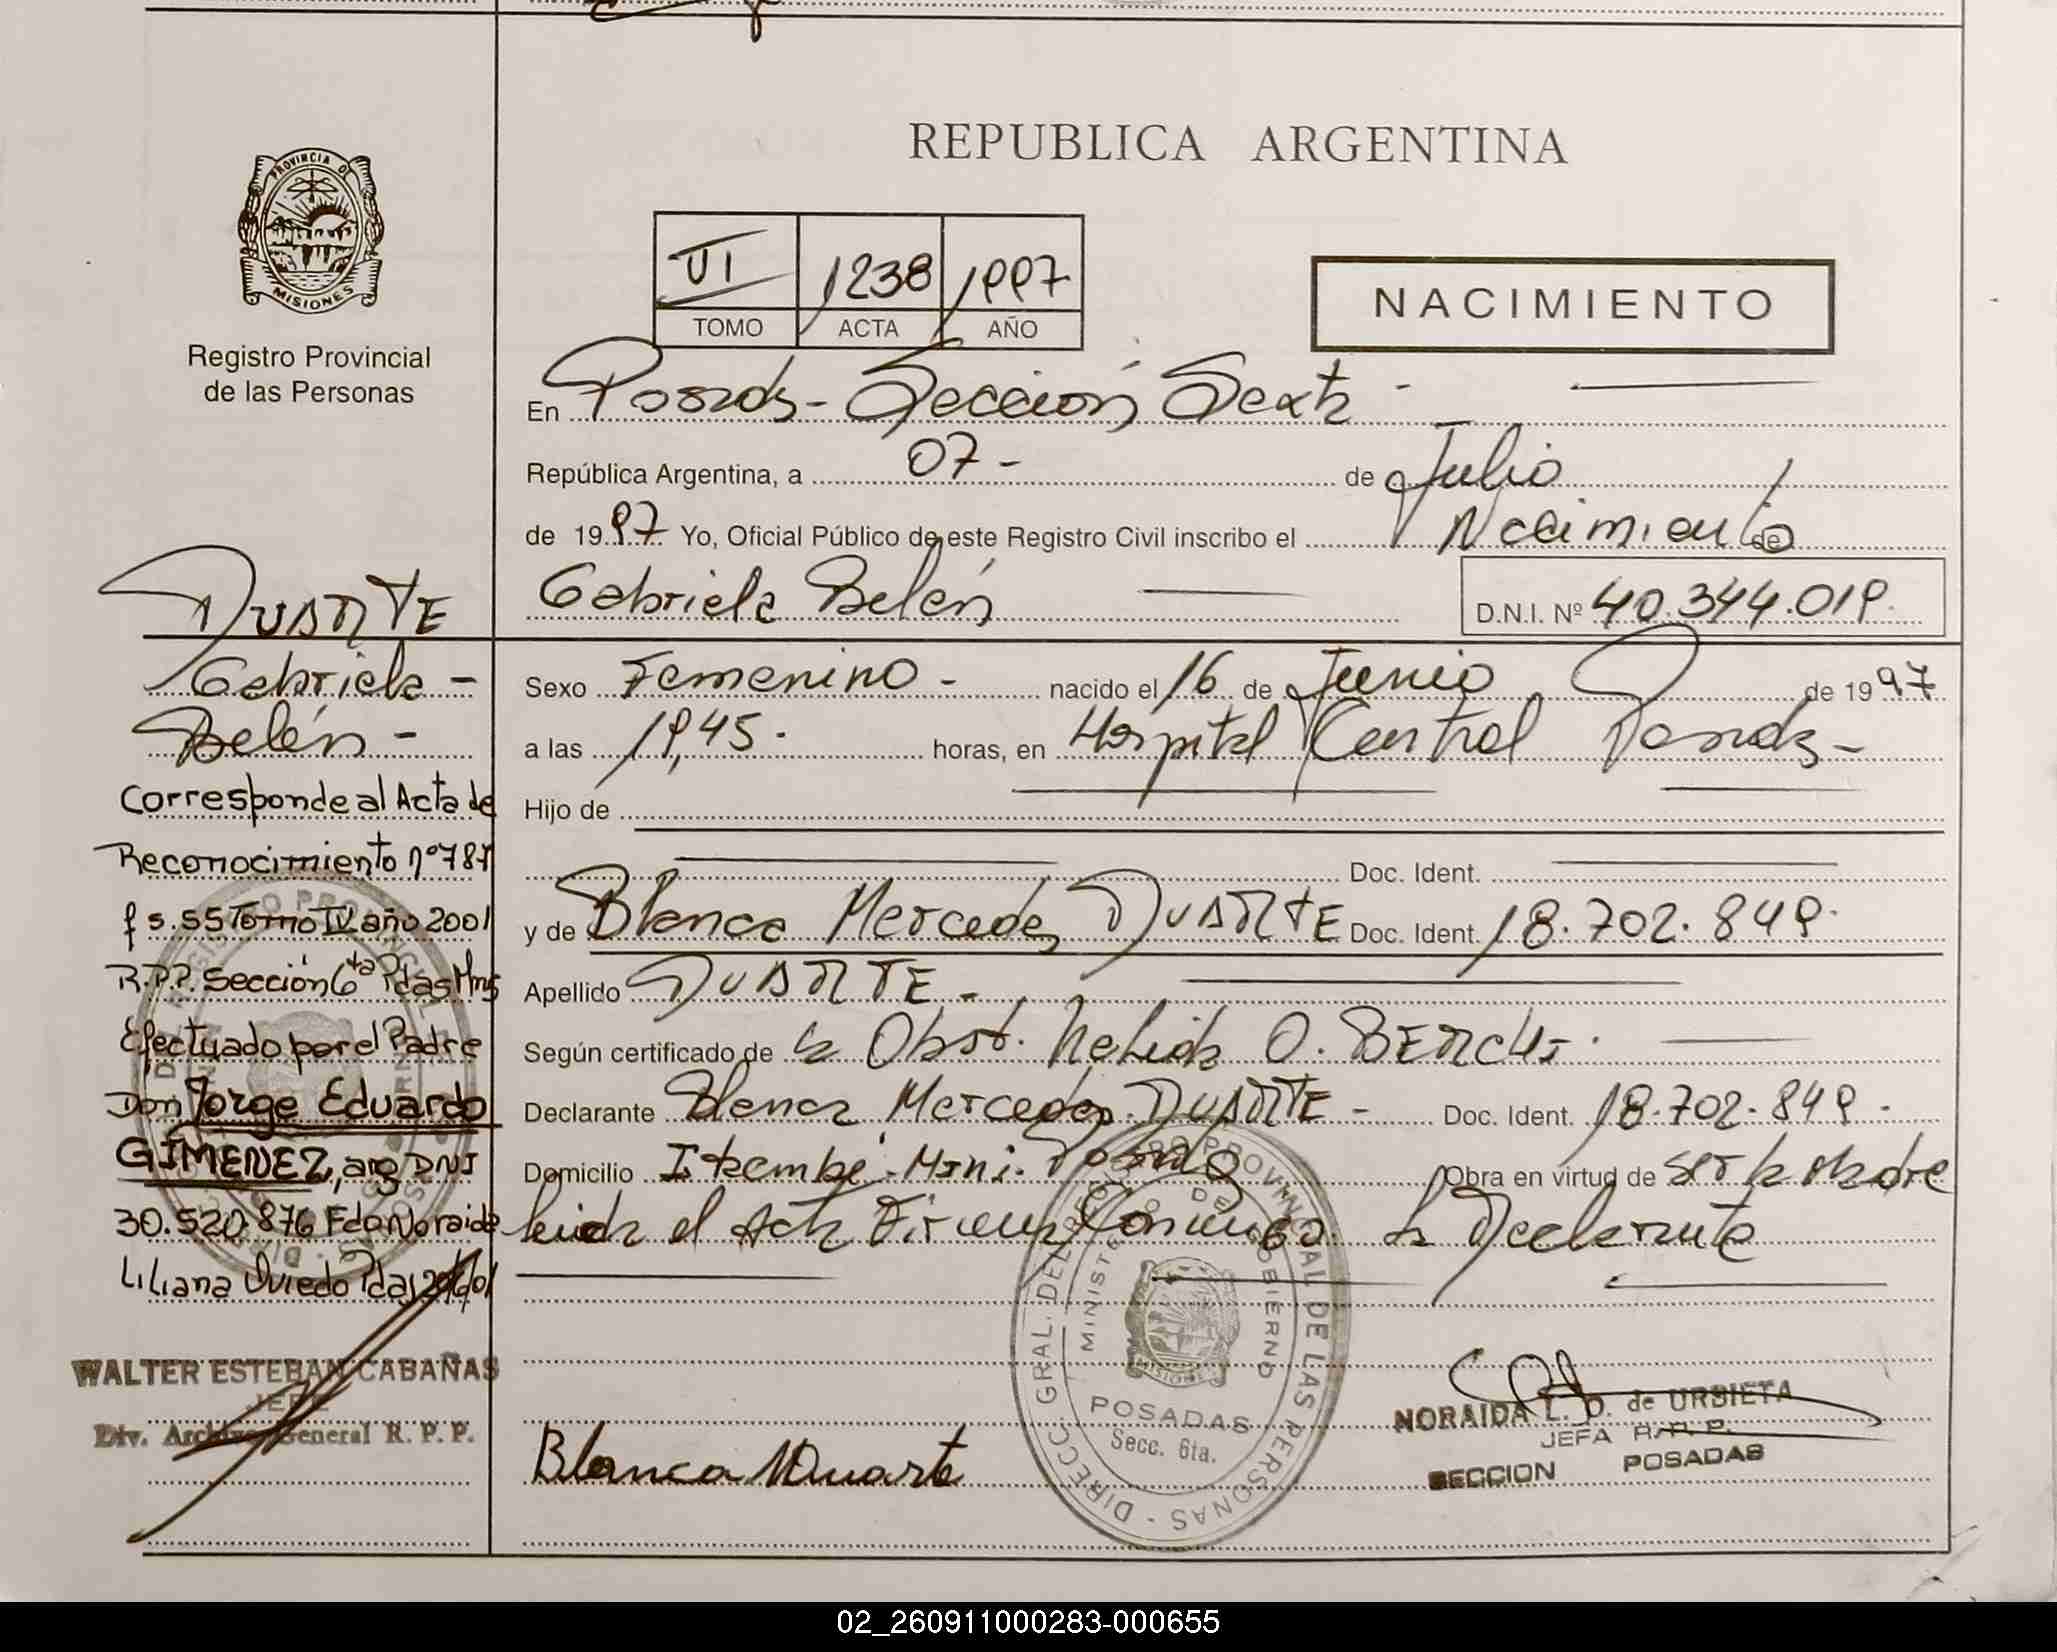 REPUBLICA ARGENTINA
PROVINCIA DE
MISIONES
Registro Provincial
de las Personas
VI 1238 1997
TOMO ACTA AÑO
NACIMIENTO
En Posadas - Sección Sexta -
República Argentina, a 07 - de Julio
de 1997 Yo, Oficial Público de este Registro Civil inscribo el Nacimiento de
Gabriela Belén
D.N.I. Nº 40.344.019.
DUARTE
Gabriela -
Belén -
Corresponde al Acta de
Reconocimiento nº 787
fs. 55 Tomo IV año 2001
R.P.P. Sección 6ta Pdas Mnes
Efectuado por el Padre
Don Jorge Eduardo
GIMENEZ, arg DNI
30.520.876 Fdo Noraida
Liliana Oviedo Pdas
WALTER ESTEBAN CABAÑAS
JEFE
Div. Archivo General R. P. P.
Sexo Femenino - nacido el 16 de Junio de 1997
a las 19,45 - horas, en Hospital Central Posadas -
Hijo de
Doc. Ident.
y de Blanca Mercedes DUARTE Doc. Ident. 18.702.849.
Apellido DUARTE -
Según certificado de la Obst. Nelida O.
Declarante Blanca Mercedes DUARTE - Doc. Ident. 18.702.849.
Domicilio Itaembé - Mini - Posadas Obra en virtud de ser la Madre
leida el Acta Firma Conmigo la Declarante
Blanca M Duarte
DIRECC. GRAL. DEL REGISTRO PROVINCIAL DE LAS PERSONAS
MINISTERIO DE GOBIERNO
MISIONES
POSADAS
Secc. 6ta.
NORAIDA L. O. de URBIETA
JEFA R. P. P.
SECCION POSADAS
02_260911000283-000655